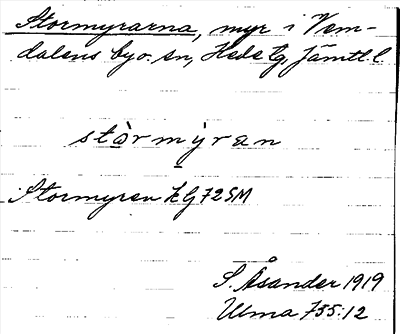 Stormyrarna, myr i Vem-
dalens by o. sn, Hede tg, Jämtl. l.
stòrmỳran
Stormyren kg 72 SM
S. Åsander 1919
Ulma 755:12